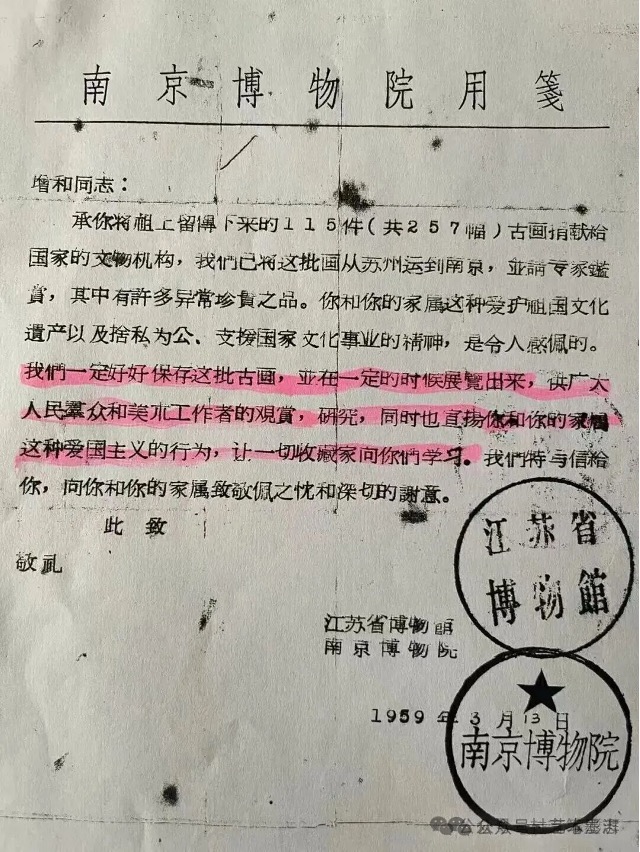 南京博物院用箋
增和同志：
承你将祖上留傳下来的115件（共257幅）古画捐献給
国家的文物机构，我們已将这批画从苏州运到南京，並請专家鑑
賞，其中有許多异常珍貴之品。你和你的家属这种爱护祖国文化
遺产以及捨私为公、支援国家文化事业的精神，是令人感佩的。
我們一定好好保存这批古画，並在一定的时候展覽出来，供广大
人民羣众和美术工作者的观賞，研究，同时也宣揚你和你的家属
这种爱国主义的行为，让一切收藏家向你們学习。我們特与信給
你，向你和你的家属致敬佩之忱和深切的謝意。
此致
敬礼
江苏省博物館
南京博物院
1959年3月13日
江苏省
博物館
南京博物院
公众号